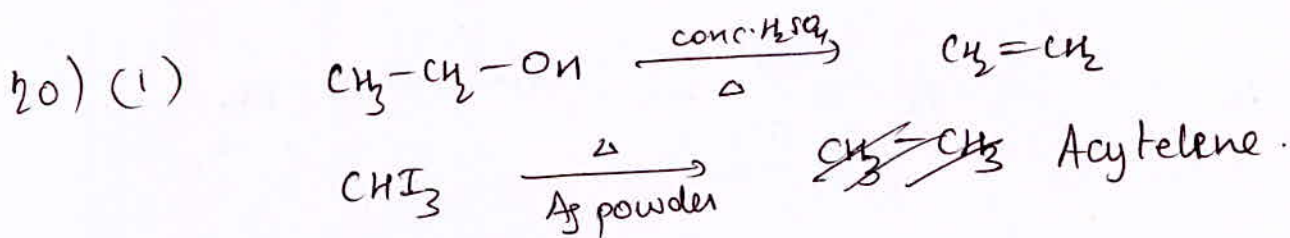 20) (1) CH3-CH2-OH conc. H2SO4 Δ CH2=CH2
CHI3 Δ Ag powder CH3-CH3 Acytelene.